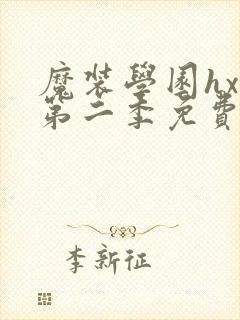 魔装學園hx
第二季免費
李新征